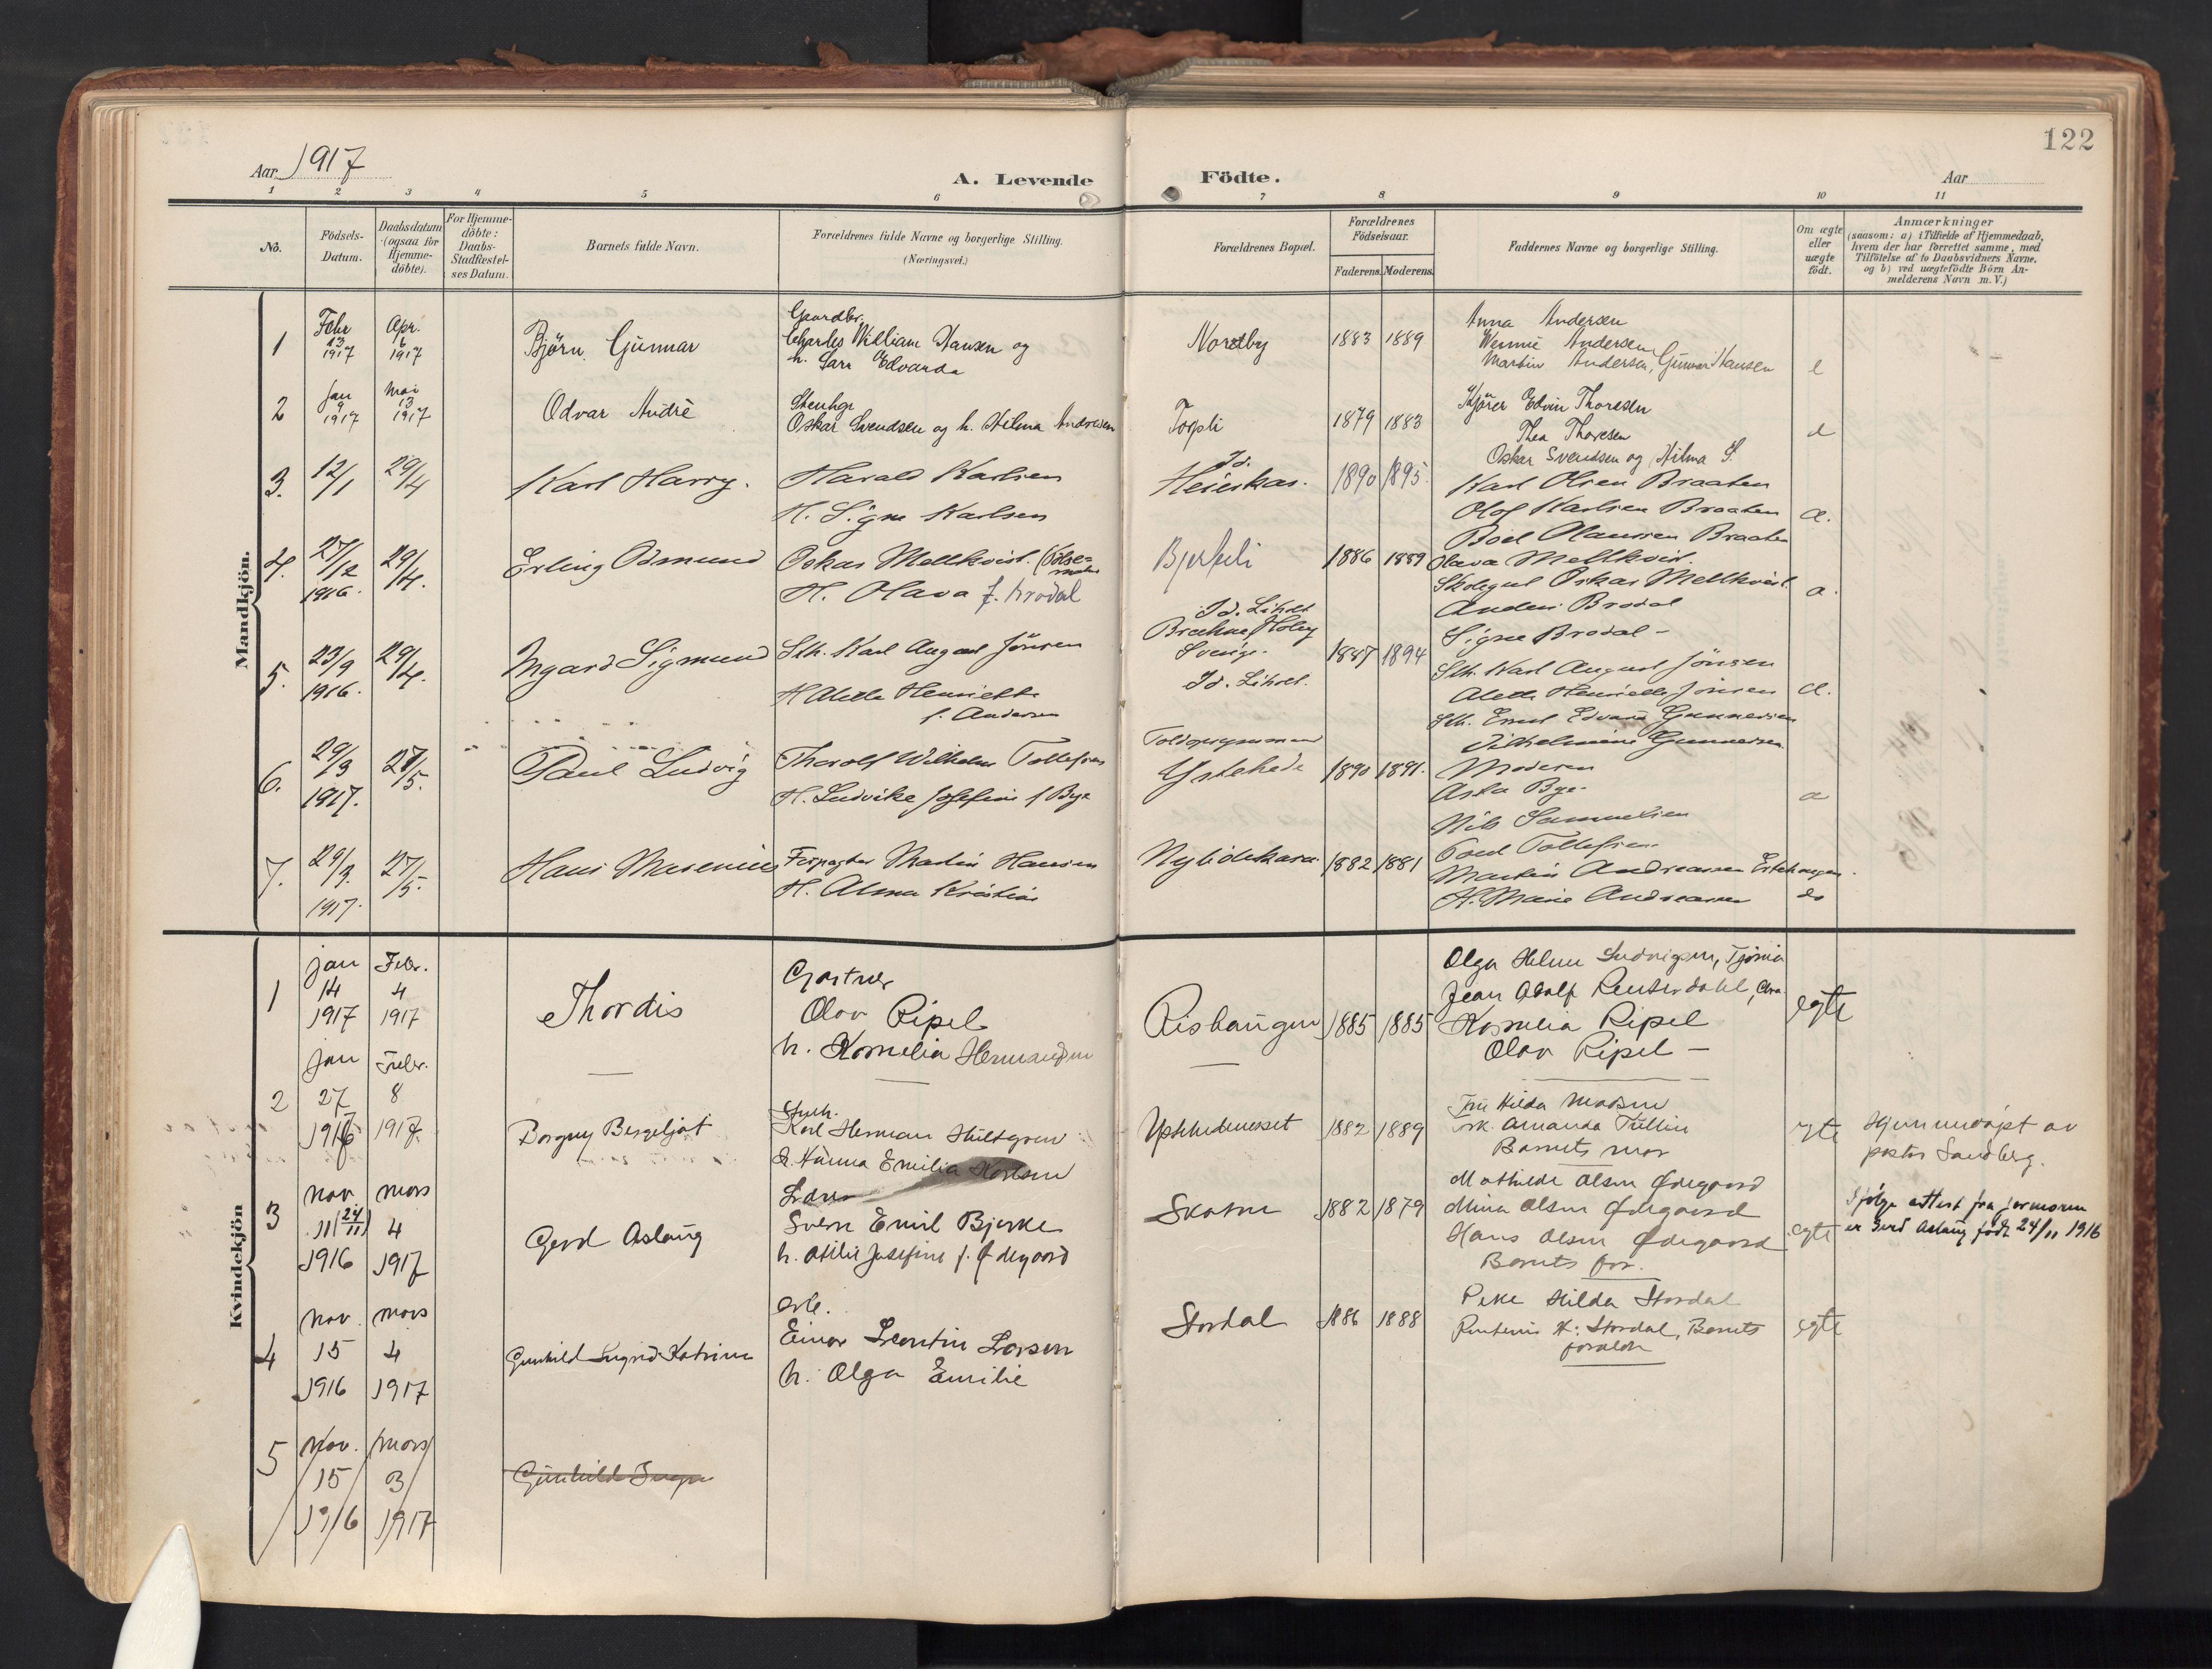 122
Aar 1917
A. Levende Födte.
Aar
1 2 3 4 5 6 7 8 9 10 11
No.
Födsels-Datum.
Daabsdatum (ogsaa for Hjemme-döbte).
For Hjemme-döbte: Daabs-Stadfæstel-ses Datum.
Barnets fulde Navn.
Forældrenes fulde Navne og borgerlige Stilling. (Næringsvei.)
Forældrenes Bopæl.
Forældrenes Födselsaar.
Faderens. Moderens.
Faddernes Navne og borgerlige Stilling.
Om ægte eller uægte födt.
Anmærkninger
(saasom: a) i Tilfælde af Hjemmedaab, hvem der har forrettet samme, med Tilföielse af to Daabsvidners Navne, og b) ved uægtefödte Börn Anmelderens Navn m. V.)
Mandkjön.
1 Febr 13 1917 Apr. 6 1917 Björn Gunnar
Gaardbr. Charles William Hansen og
h. Sara Edvarda
Nordby 1883 1889
Anna Andersen
Wennie Andersen
Martin Andersen, Gunnar Hansen
e
2 Jan 9 1917 Mai 13 1917 Odvar André
Stenhgr
Oskar Svendsen og h. Hilma Andresen
Torpli 1879 1883
Kjörer Edvin Thoresen
Thea Thoresen
Oskar Svendsen og Hilma S.
e
3. 12/1 29/4 Karl Harry.
Harald Karlsen
H. Signe Karlsen
Id. 1890 1895
Karl Olsen Braaten
Olof Karlsen Braaten
Boel Hansen Braaten
4. 27/12 1916. 29/4. Erling Osmund
Oskar Mellkvist.
H. Olava f. Brodal
Bjerkeli 1886 1889
Olava Mellkvist.
Oskar Mellkvist
Anders Brodal
Signe Brodal -
5. 23/9 1916. 29/4. Yngard Sigmund
Sth. Karl August Jönsen
H Alette Henriette
f. Andersen
Sverige.
1887 1894
Sth. Karl August Jönsen
Alette Henriette Jönsen
Sth. Edvard Gunnersen
Vilhelmine Gunnersen
6. 29/3 1917. 27/5. Paul Ludvig
Thorolf Wilhelm Tollefsen
H. Ludvike Josefine f Bye
Ystehede 1890 1891.
Moderen
Asta Bye.
Nils Samuelsen
Poul Tollefsen
7. 29/3. 1917. 27/5. Hans Marenius
Forpagter Martin Hansen
H. Alma Kristine
1882 1881
Martin Andreassen
H. Marie Andreassen
do
Kvindekjön
1 Jan 14 1917 Febr. 4 1917 Thordis
Gartner
Olav Ripel
h. Kornelia Hermansen
Rishaugen 1885 1885
Olga Helene Ludvigsen,
Jean Adolf
Kornelia Ripel
Olav Ripel -
egte
2 Jan 27 Febr. 8 1917 Borgny Bergljot
Stenh.
Karl Herman Hultgren
h. Hanna Emilia Karlsen
1882 1889
Fru Hilda Madsen
Frk. Amanda Tullin
Barnets mor
egte
Hjemmedøpt av
pastor Sandberg.
3 Nov. 11 (24/11) 1916 Mars 4 1917 Gerd Aslaug
Svern Emil Bjerke
h. Otilie Josefine f. Ødegaard
1882 1879
Mathilde Olsen Ødegaard
Mina Olsen Ødegaard
Hans Olsen Ødegaard
Barnets far.
egte
Ifølge attest fra jormoren
er Gerd Aslaug født 24/11 1916
4 Nov. 15 1916 Mars 4 1917 Gunhild Ingrid Katrine
Arb.
Einar Leontin Larsen
h. Olga Emilie
Stordal 1886 1888
Pike Hilda Stordal
H. Stordal, Barnets
foreldre
egte
5 Nov. 15 1916 Mars 3 1917 Gunhild Ingr